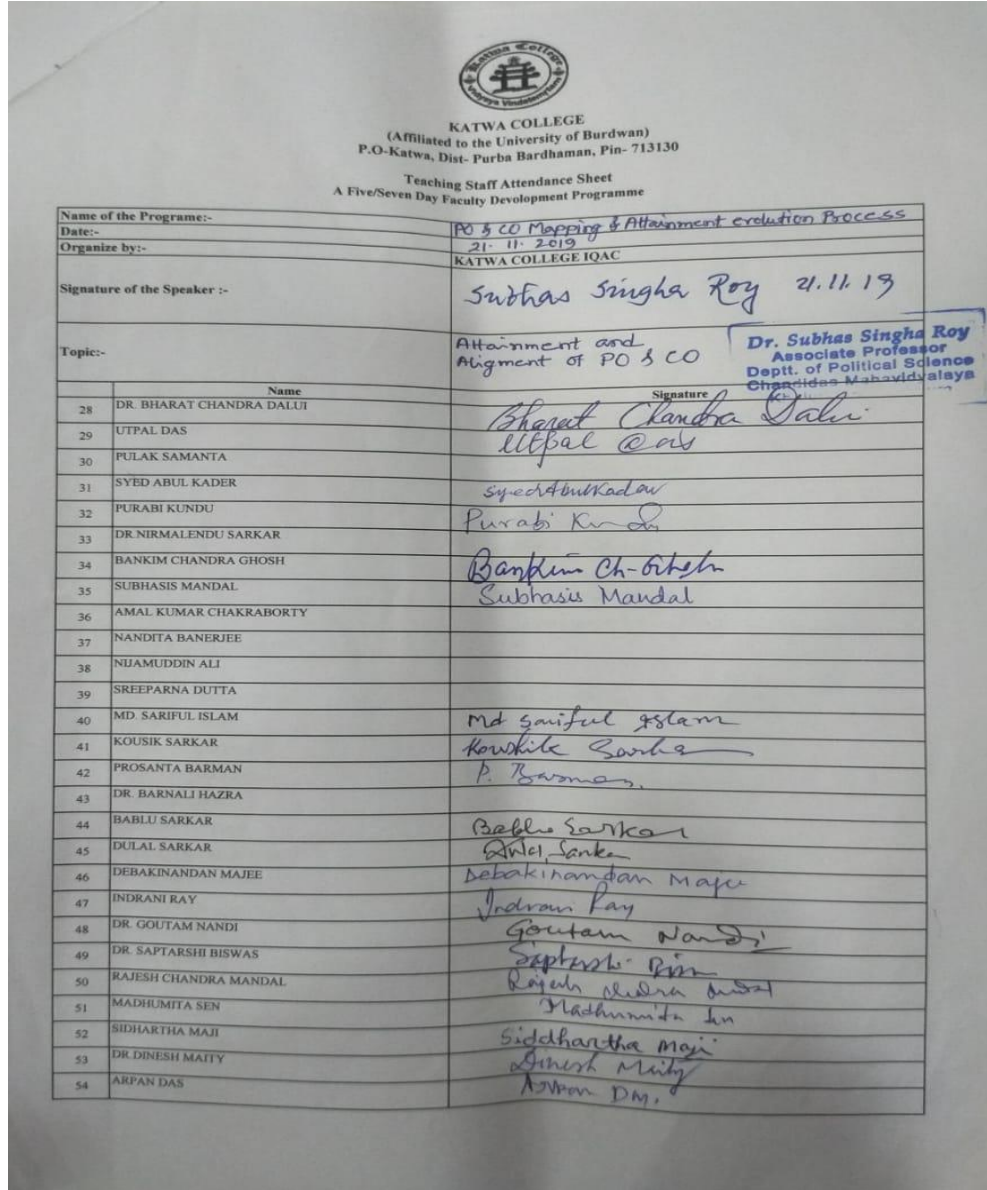 Katwa College
Vidyaya Vindatemritam
KATWA COLLEGE
(Affiliated to the University of Burdwan)
P.O-Katwa, Dist- Purba Bardhaman, Pin- 713130
Teaching Staff Attendance Sheet
A Five/Seven Day Faculty Devolopment Programme
Name of the Programe:- PO & CO Mapping & Attainment evolution Process
Date:- 21. 11. 2019
Organize by:- KATWA COLLEGE IQAC
Signature of the Speaker :- Subhas Singha Roy 21.11.19
Topic:- Attainment and
Aligment of PO & CO
Dr. Subhas Singha Roy
Associate Professor
Deptt. of Political Science
Chandidas Mahavidyalaya
Name Signature
28 DR. BHARAT CHANDRA DALUI Bharat Chandra Dalui
29 UTPAL DAS Utpal Das
30 PULAK SAMANTA
31 SYED ABUL KADER Syed Abul Kader
32 PURABI KUNDU Purabi Kundu
33 DR.NIRMALENDU SARKAR
34 BANKIM CHANDRA GHOSH Bankim Ch-Ghosh
35 SUBHASIS MANDAL Subhasis Mandal
36 AMAL KUMAR CHAKRABORTY
37 NANDITA BANERJEE
38 NIJAMUDDIN ALI
39 SREEPARNA DUTTA
40 MD. SARIFUL ISLAM Md Sariful Islam
41 KOUSIK SARKAR Koushik Sarkar
42 PROSANTA BARMAN P. Barman.
43 DR. BARNALI HAZRA
44 BABLU SARKAR Bablu Sarkar
45 DULAL SARKAR Dulal Sarkar
46 DEBAKINANDAN MAJEE Debakinandan Majee
47 INDRANI RAY Indrani Ray
48 DR. GOUTAM NANDI Goutam Nandi
49 DR. SAPTARSHI BISWAS Saptarshi
50 RAJESH CHANDRA MANDAL Rajesh Chandra Mandal
51 MADHUMITA SEN Madhumita Sen
52 SIDHARTHA MAJI Siddhartha Maji
53 DR.DINESH MAITY Dinesh Maity
54 ARPAN DAS Arpan Das.